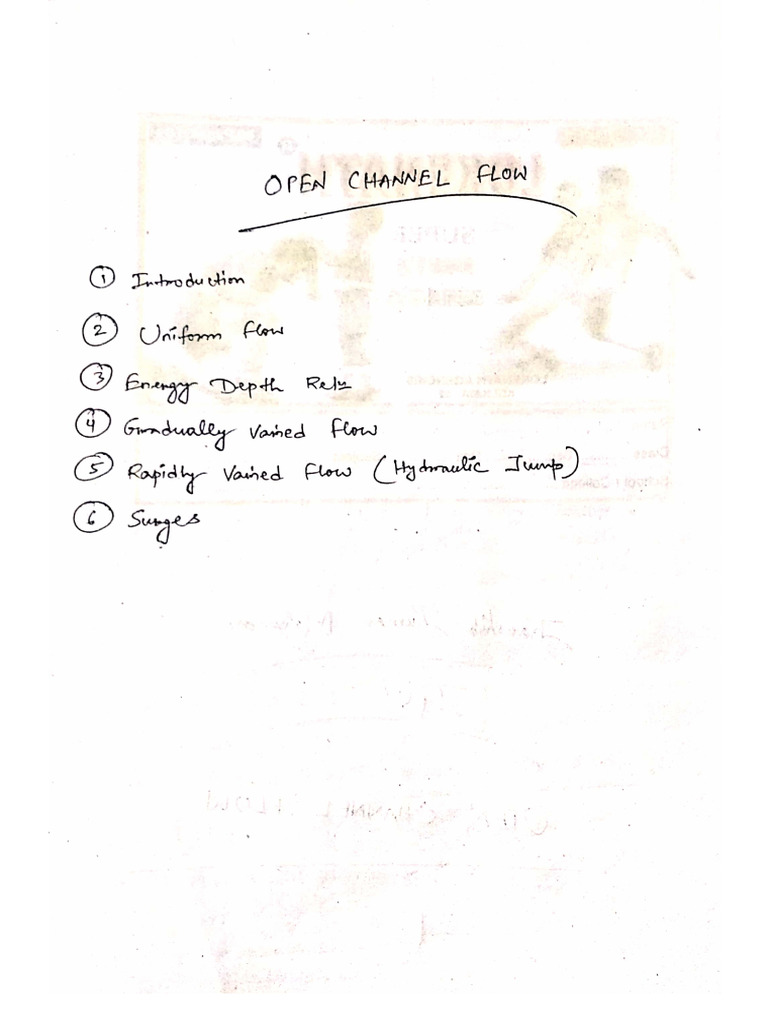 OPEN CHANNEL FLOW
① Introduction
② Uniform flow
③ Energy Depth Reln
④ Gradually varied flow
⑤ Rapidly varied flow (Hydraulic Jump)
⑥ Surges